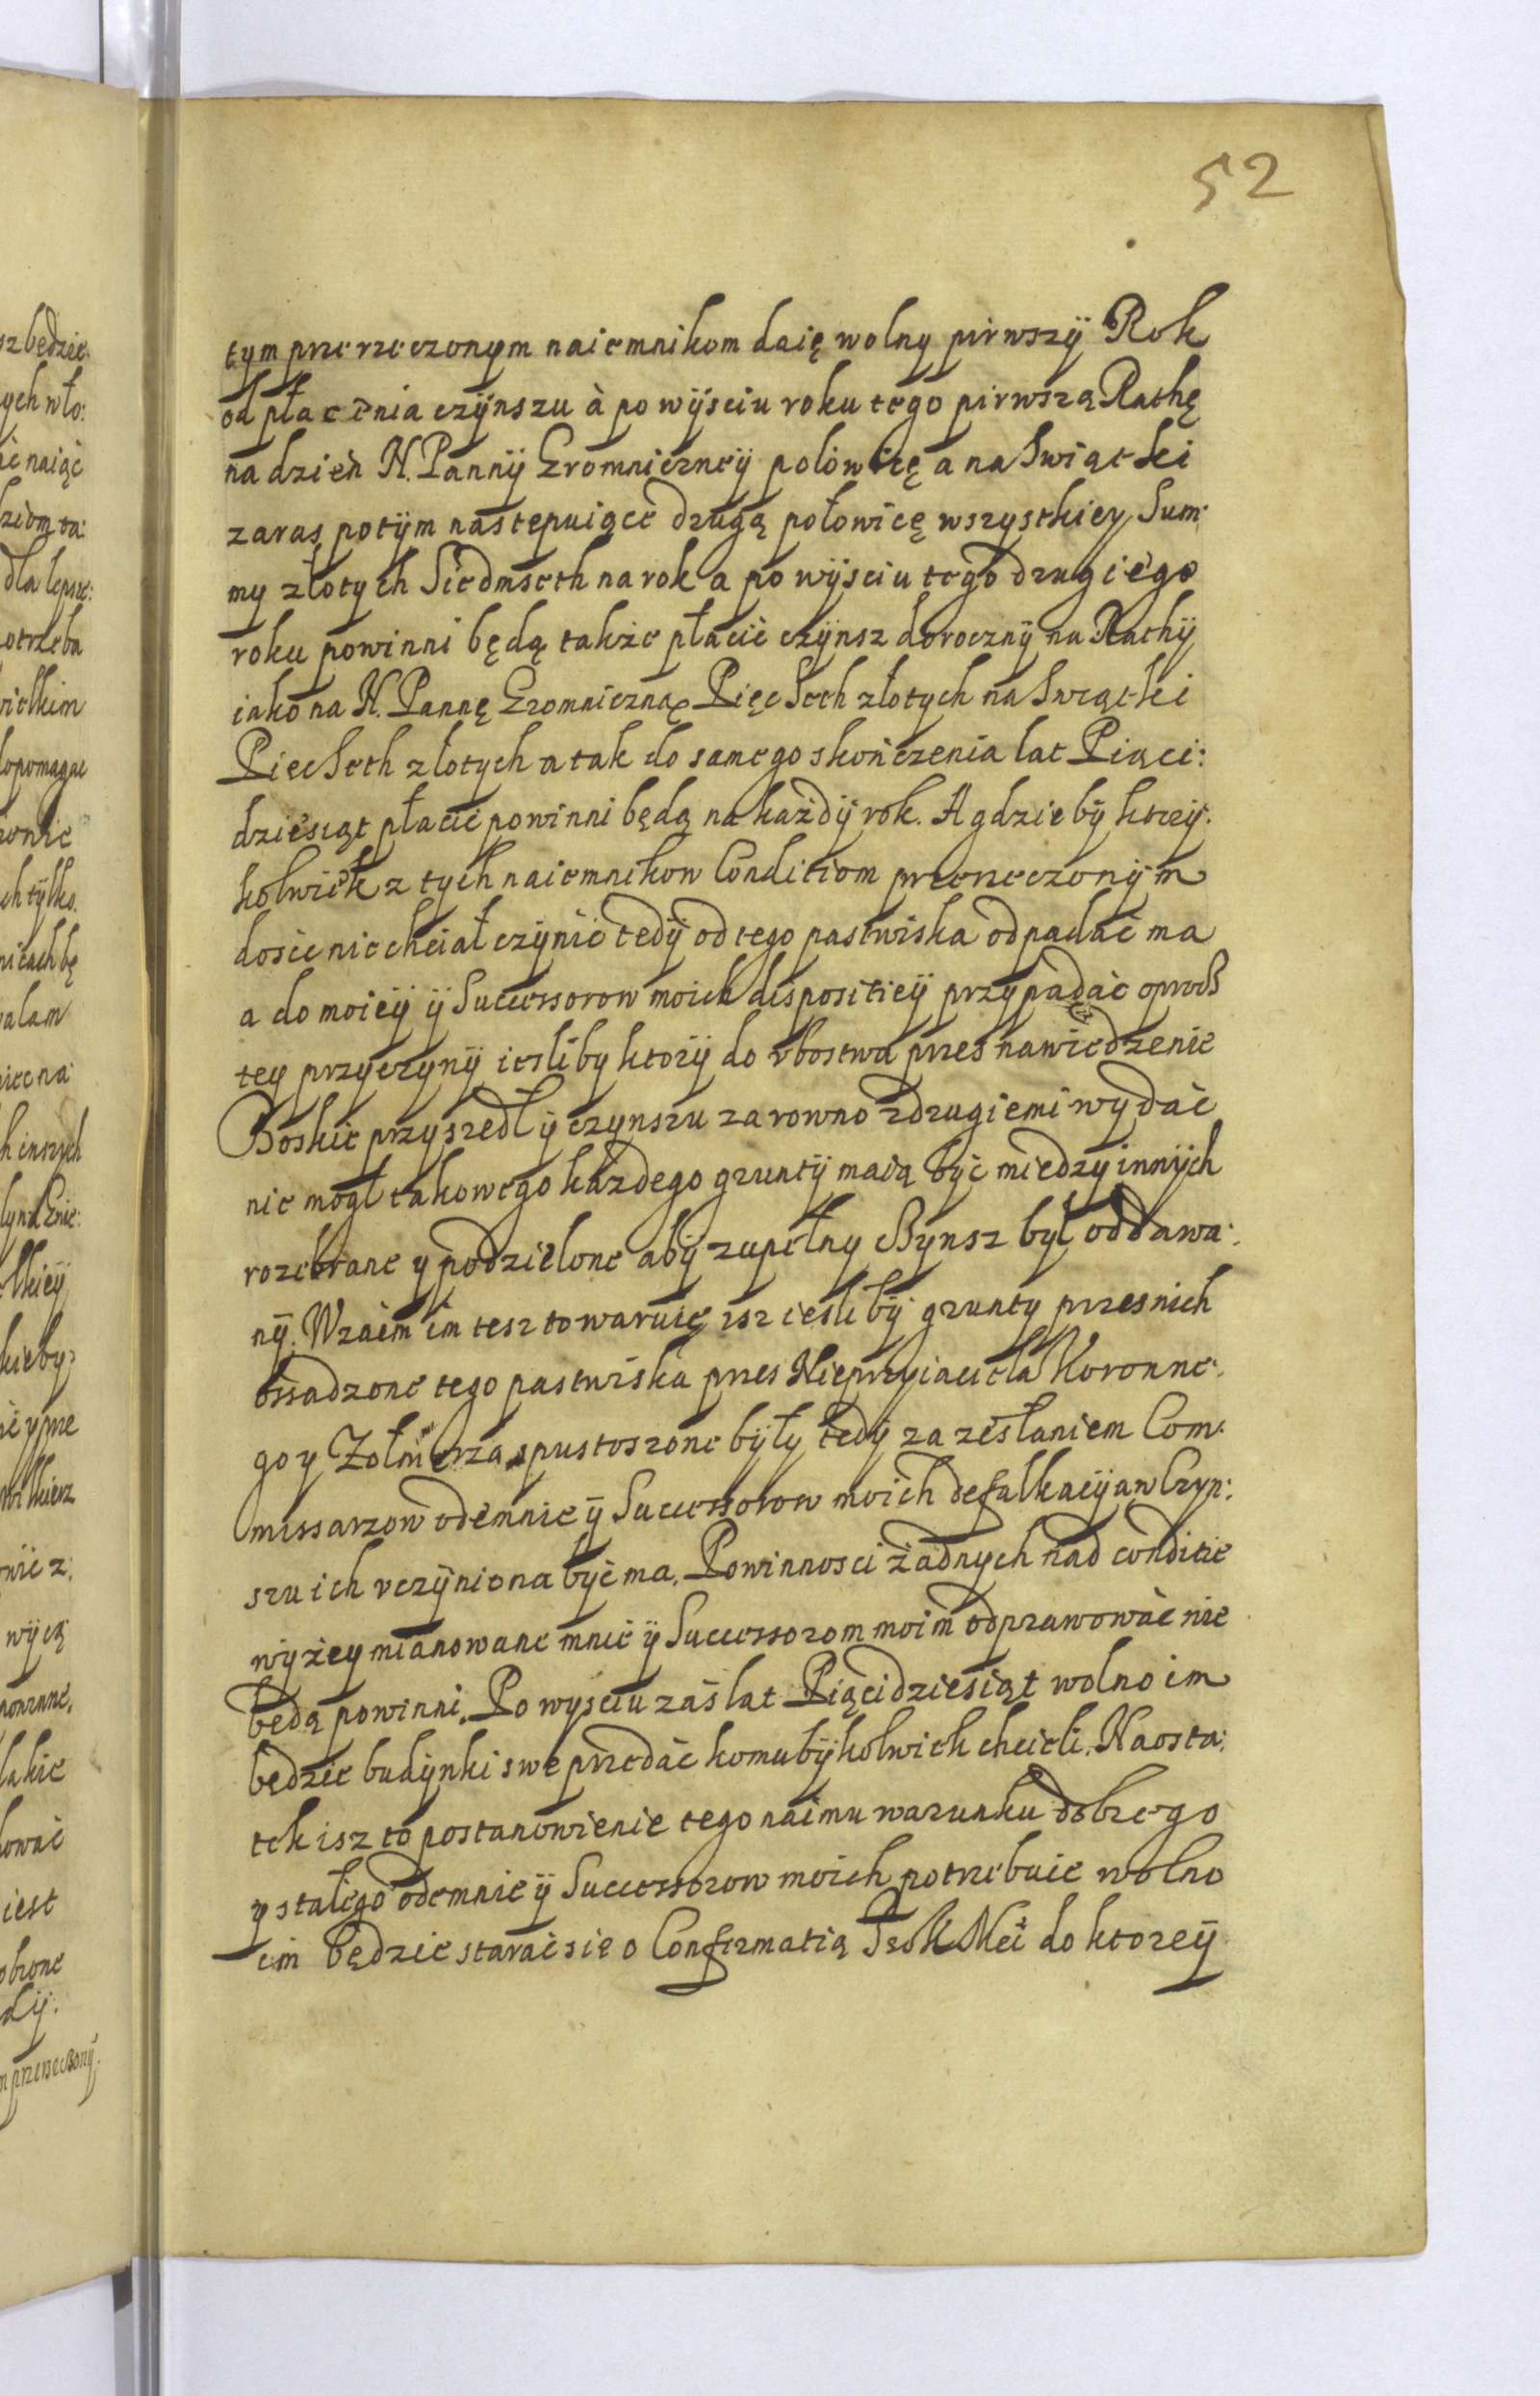 52
tym przerzeczonym naiemnikom daię wolny pirwszÿ Rok
od płacenia czÿnszu à po wÿsciu roku tego pirwszą Rathę
na dzień N. Pannÿ Gromniczneÿ polowicę a na Swiątki
zaras potÿm nastepuiące drugą połowicę wszystkiey Sum:
my złotych Siedmseth na rok a po wÿsciu tego drugiego
roku powinni będą także płacić czÿnsz dorocznÿ na Rathÿ
iako na N. Pannę Gromniczną Pięcseth złotych na Swiątki
Piecseth złotych a tak do samego skończenia lat Piąci:
dziesiąt płacić powinni będą na każdÿ rok. A gdzie bÿ ktorÿ:
kolwiek z tych naiemnikow Conditiom przerzeczonÿm
dosic nie chciał czÿnić tedÿ od tego pastwiska odpadać ma
a do moieÿ ÿ Successorow moich dispositieÿ przypadać oprocz
tey przyczynÿ iesliby ktorÿ do vbostwa przes nawiedzenie
Boskie przyszedł ÿ czynszu zarowno z drugiemi wydać
nie mogł takowego każdego gruntÿ maią być miedzy innÿch
rozebrane y podzielone abÿ zupełny Czynsz był oddawa:
nÿ. Wzaim im tesz to waruię isz iesli bÿ grunty przes nich
ossadzone tego pastwiska przes Nieprzyiaciela Koronne:
go y Żołnierza spustoszone były tedÿ za zesłaniem Com:
missarzow odemnie ÿ Successorow moich defalkacÿa w Czyn:
szu ich vczÿniona być ma. Powinnosci żadnych nad conditie
wÿżey mianowane mnie ÿ Successorom moim odprawować nie
będą powinni. Po wysciu zaś lat Piącidziesiąt wolno im
będzie budÿnki swe przedać komubÿkolwiek chcieli. Na osta:
tek isz to postanowienie tego naimu warunku dobrego
y stałego odemnie ÿ Successorow moich potrzebuie wolno
im będzie starać się o Confirmatią Je° K Mci do ktoreÿ